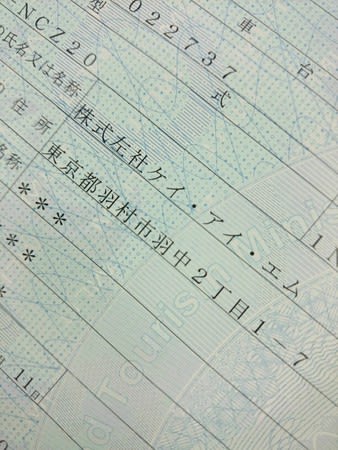 車 台
型 022737
NCZ20 式
の氏名又は名称 株式左社ケイ・アイ・エム
の 住 所 東京都羽村市羽中2丁目1-7
名称 ***
***
*
月 11日